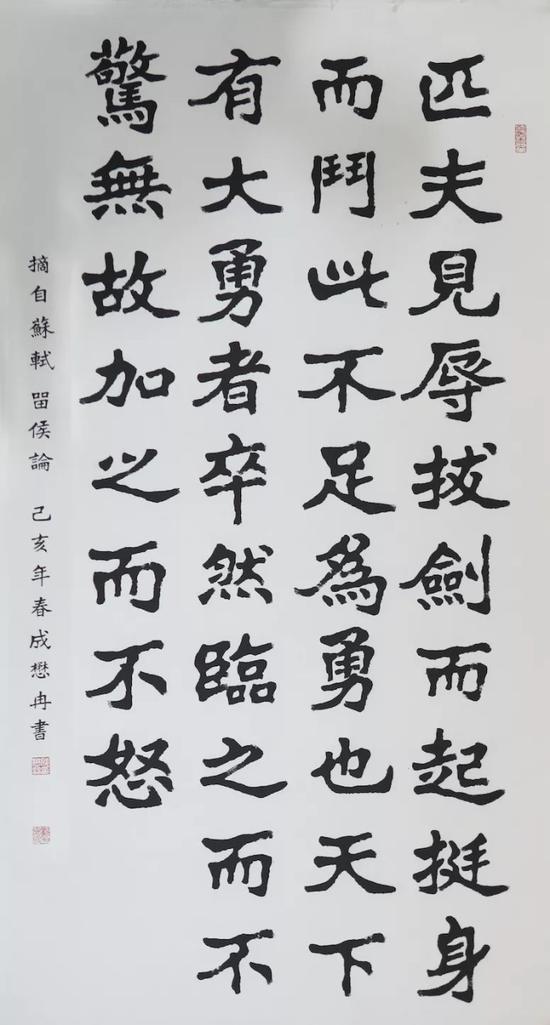 匹夫見辱拔劍而起挺身
而鬥此不足為勇也天下
有大勇者卒然臨之而不
驚無故加之而不怒
摘自蘇軾 留侯論 己亥年春成懋冉書